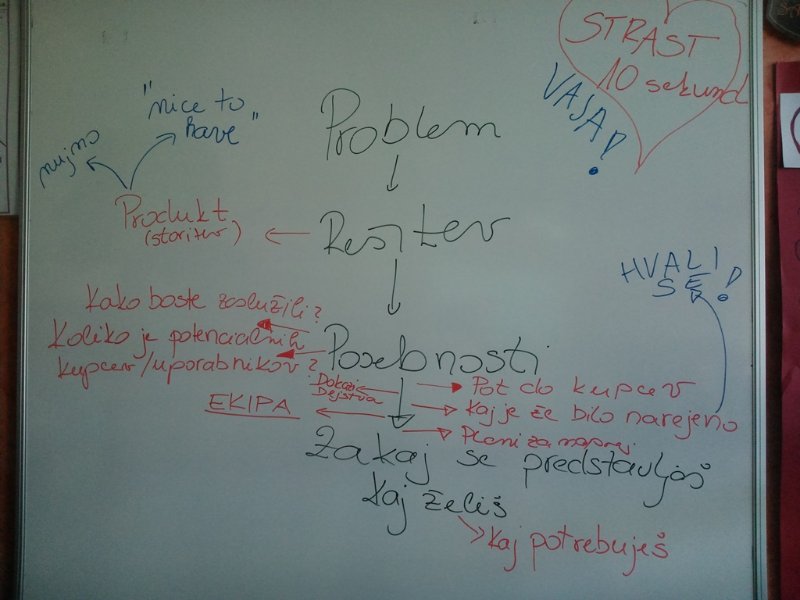 STRAST
10 sekund
VAJA!
"nice to
have"
nujno
Problem
Produkt
(storitev)
Rešitev
HVALI
SE!
Kako boste zaslužili?
Koliko je potencialnih
kupcev/uporabnikov?
Posebnosti
Dokazi
Dejstva
Pot do kupcev
EKIPA
Kaj je že bilo narejeno
Plani za naprej
Zakaj se predstavljaš
Kaj želiš
Kaj potrebuješ